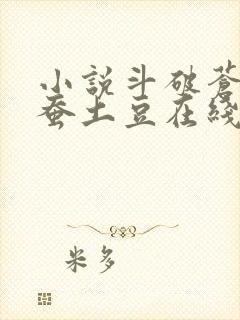 小說斗破蒼
蚕土豆在綫
米多